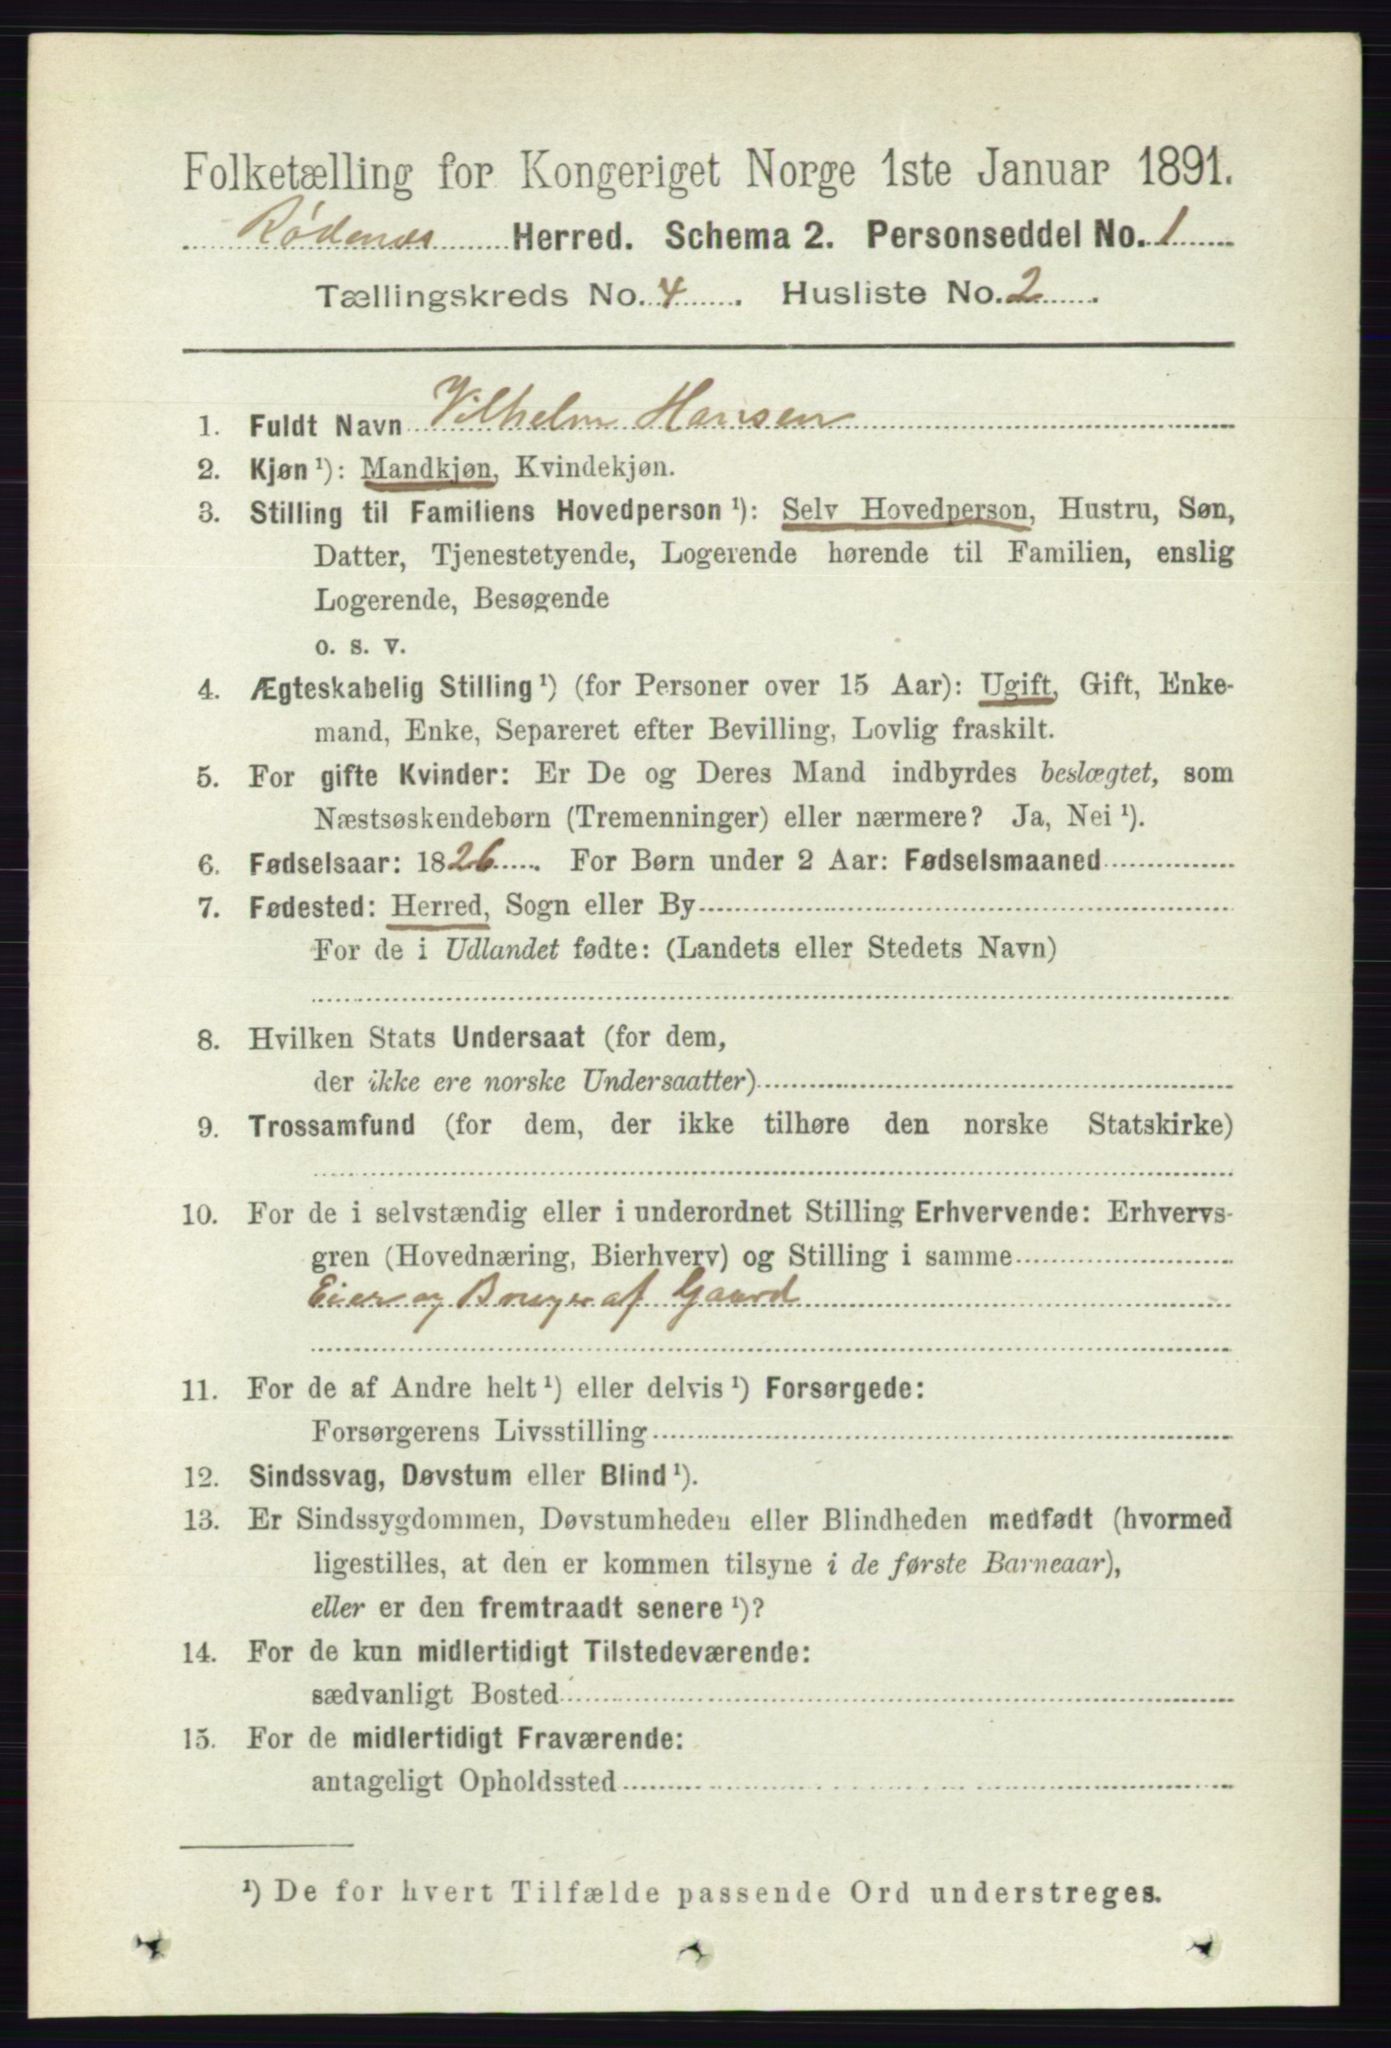 Folketælling for Kongeriget Norge 1ste Januar 1891.
Rødenæs Herred. Schema 2. Personseddel No. 1
Tællingskreds No. 4. Husliste No. 2.
1. Fuldt Navn Vilhelm Hansen
2. Kjøn ¹): Mandkjøn, Kvindekjøn.
3. Stilling til Familiens Hovedperson ¹): Selv Hovedperson, Hustru, Søn,
Datter, Tjenestetyende, Logerende hørende til Familien, enslig
Logerende, Besøgende
o. s. v.
4. Ægteskabelig Stilling ¹) (for Personer over 15 Aar): Ugift, Gift, Enke-
mand, Enke, Separeret efter Bevilling, Lovlig fraskilt.
5. For gifte Kvinder: Er De og Deres Mand indbyrdes beslægtet, som
Næstsøskendebørn (Tremenninger) eller nærmere? Ja, Nei ¹).
6. Fødselsaar: 1826. For Børn under 2 Aar: Fødselsmaaned
7. Fødested: Herred, Sogn eller By
For de i Udlandet fødte: (Landets eller Stedets Navn)
8. Hvilken Stats Undersaat (for dem,
der ikke ere norske Undersaatter)
9. Trossamfund (for dem, der ikke tilhøre den norske Statskirke)
10. For de i selvstændig eller i underordnet Stilling Erhvervende: Erhvervs-
gren (Hovednæring, Bierhverv) og Stilling i samme
Eier og Bruger af Gaard
11. For de af Andre helt ¹) eller delvis ¹) Forsørgede:
Forsørgerens Livsstilling
12. Sindssvag, Døvstum eller Blind ¹).
13. Er Sindssygdommen, Døvstumheden eller Blindheden medfødt (hvormed
ligestilles, at den er kommen tilsyne i de første Barneaar),
eller er den fremtraadt senere ¹)?
14. For de kun midlertidigt Tilstedeværende:
sædvanligt Bosted
15. For de midlertidigt Fraværende:
antageligt Opholdssted
¹) De for hvert Tilfælde passende Ord understreges.